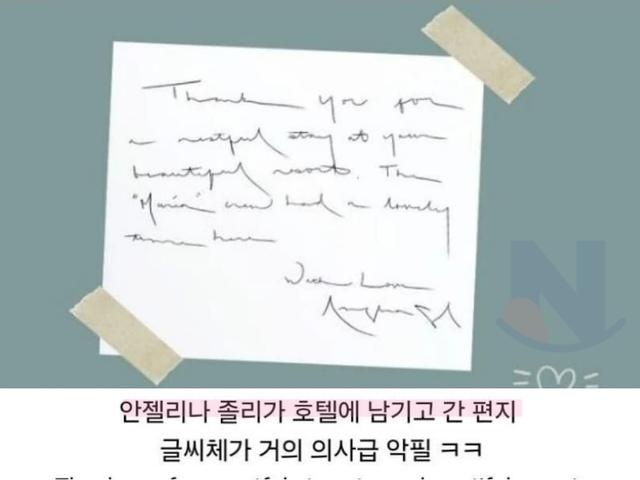 Thank you for
a restful stay at your
beautiful resort. The
"Maria" crew had a lovely
time here
With Love
안젤리나 졸리가 호텔에 남기고 간 편지
글씨체가 거의 의사급 악필 ㅋㅋ